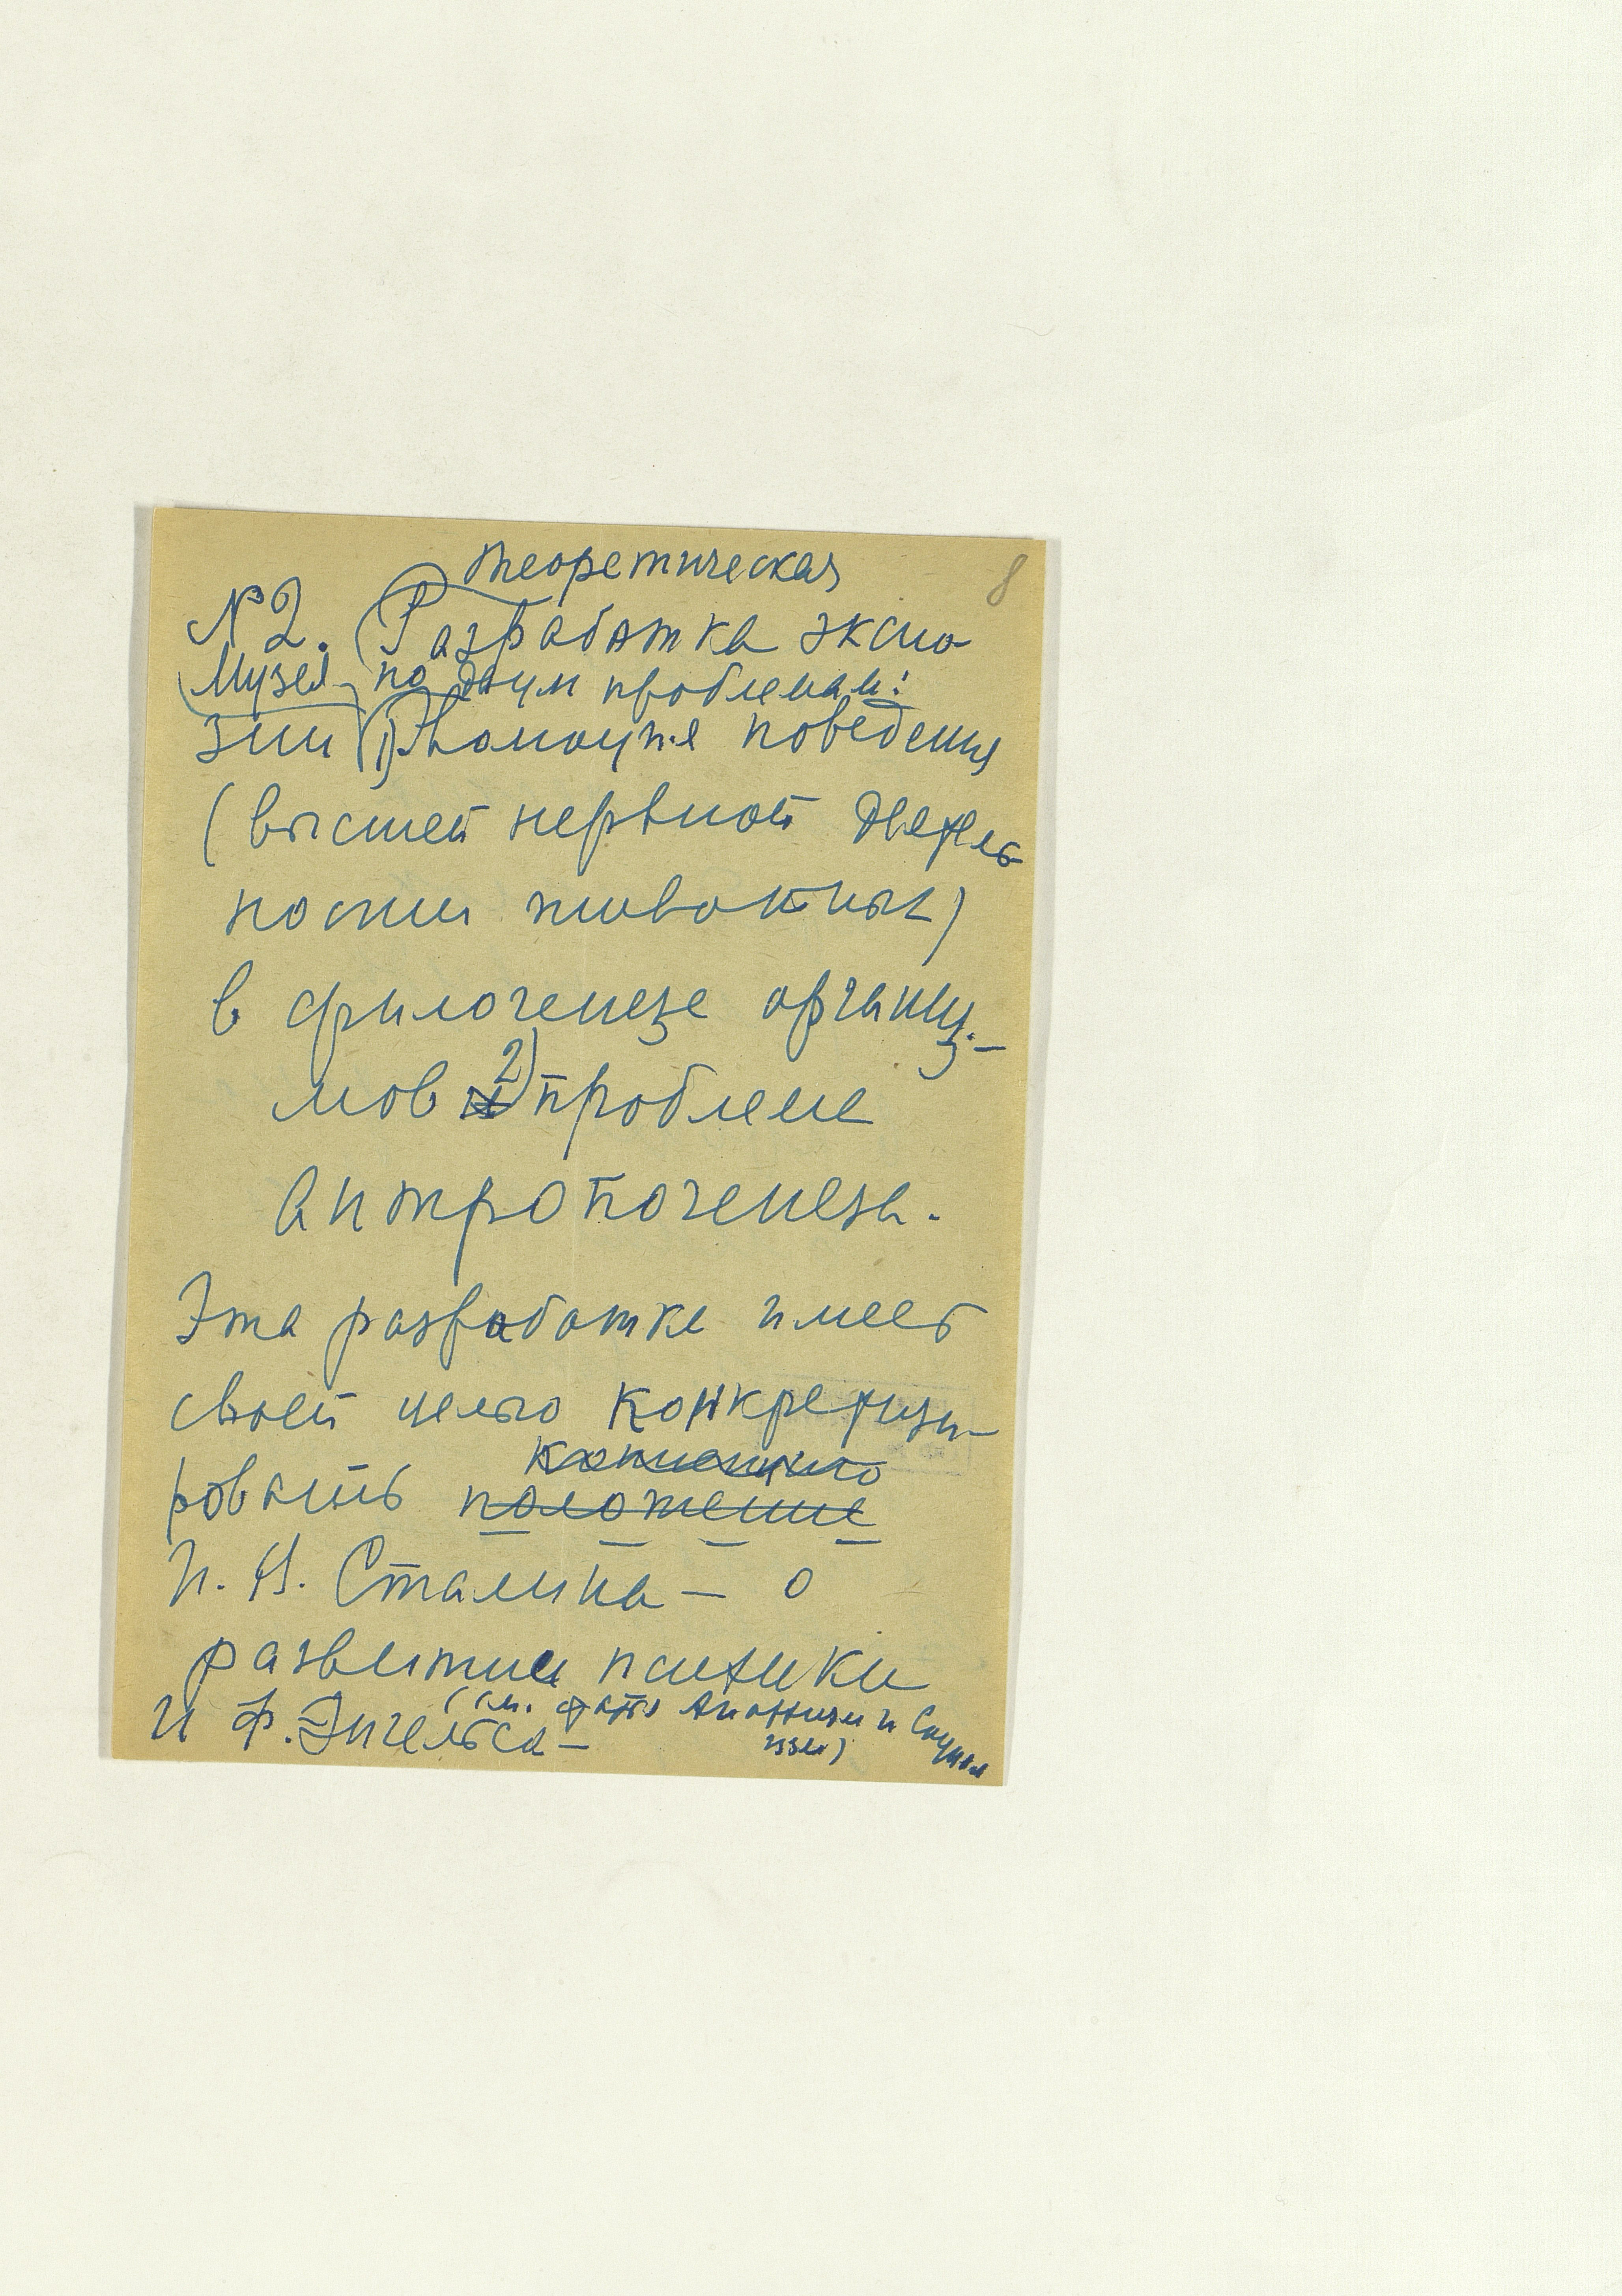 теоретическая
8
№ 2. Разработка экспо-
Музея по двум проблемам:
зии 1) Эволюция поведения
(высшей нервной деятель
ности животных)
в филогенезе организ-
мов и 2) проблеме
антропогенеза.
Эта разработка имеет
своей целью конкретизи-
ровать положение
концепцию
И. В. Сталина – о
развитии психики
(см. Анархизм и Социал
изм)
и Ф. Энгельса –